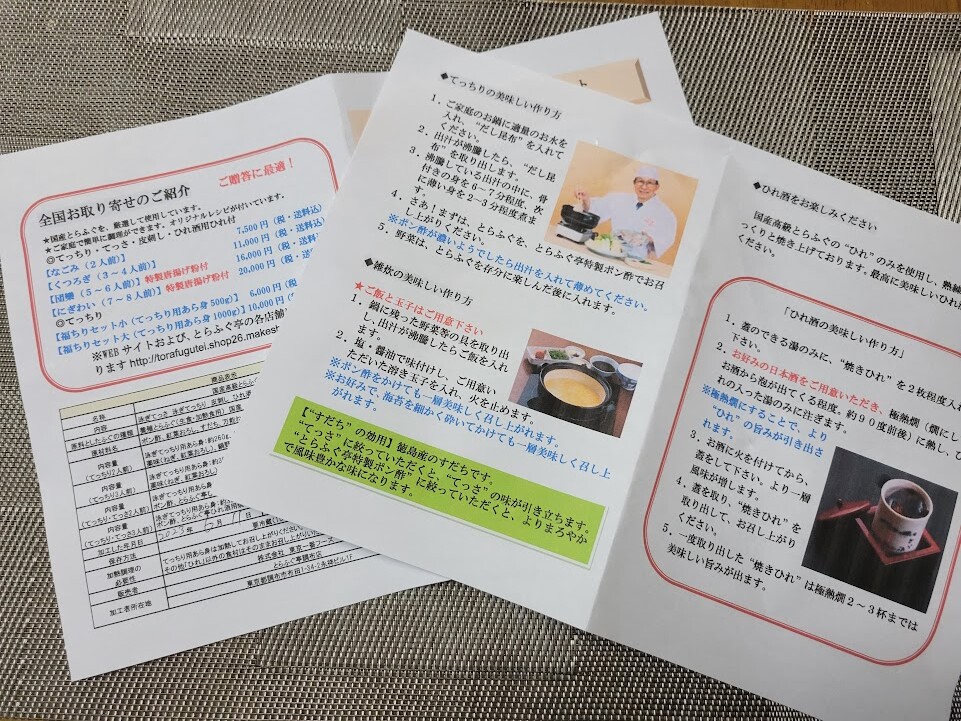 全国お取り寄せのご紹介
ご贈答に最適！
★国産とらふぐを、厳選して使用しています。
★ご家庭で簡単に調理ができます。オリジナルレシピが付いています。
◎てっちり・てっさ・皮刺し・ひれ酒用ひれ付
【なごみ（２人前）】 7,500円（税・送料込）
【くつろぎ（３～４人前）】 11,000円（税・送料込
【団欒（５～６人前）】特製唐揚げ粉付 16,000円（税・送料込
【にぎわい（７～８人前）】特製唐揚げ粉付 20,000円（税・送料
◎てっちり
【福ちりセット小（てっちり用あら身500g）】 6,000円（税
【福ちりセット大（てっちり用あら身1000g）】10,000円（
※WEBサイトおよび、とらふぐ亭の各店舗
ります http://torafugutei.shop26.makest
商品表示
名称
内容
原料としたふぐの種類
原材料名
内容量
（てっちり2人前）
内容量
内容量
内容量
加工した年月日
保存方法
加熱調理の
必要性
販売者
加工者所在地
とらふぐ亭調布店
◆てっちりの美味しい作り方
１．ご家庭のお鍋に適量のお水を
入れ、“だし昆布”を入れて
ください。
２．出汁が沸騰したら、“だし昆
布”を取り出します。
３．沸騰している出汁の中に、骨
付きの身を６－７分程度、次
に薄い身を２－３分程度煮き
ます。
４．さあ！まずは、とらふぐを、とらふぐ亭特製ポン酢でお召
し上がりください。
※ポン酢が濃いようでしたら出汁を入れて薄めてください。
５．野菜は、とらふぐを存分に楽しんだ後に入れます。
◆雑炊の美味しい作り方
★ご飯と玉子はご用意下さい
１．鍋に残った野菜等の具を取り出
し、出汁が沸騰したらご飯を入れ
ます。
２．塩・醤油で味付けし、ご用意い
ただいた溶き玉子を入れ、火を止めます。
※ポン酢をかけても一層美味しく召し上がれます。
※お好みで、海苔を細かく砕いてかけても一層美味しく召し上
がれます。
【“すだち”の効用】徳島産のすだちです。
“てっさ”に絞っていただくと、“てっさ”の味が引き立ちます。
“とらふぐ亭特製ポン酢”に絞っていただくと、よりまろやか
で風味豊かな味になります。
◆ひれ酒をお楽しみください
国産高級とらふぐの“ひれ”のみを使用し、熟練
っくりと焼き上げております。最高に美味しいひれ
ください。
「ひれ酒の美味しい作り方」
１．蓋のできる湯のみに、“焼きひれ”を２枚程度入
２．お好みの日本酒をご用意いただき、極熱燗（燗にし
お酒から泡が出てくる程度。約９０度前後）に熱し、ひ
れの入った湯のみに注ぎます。
※極熱燗にすることで、より
“ひれ”の旨みが引き出さ
れます。
３．お酒に火を付けてから、
蓋をして下さい。より一層
風味が増します。
４．蓋を取り、“焼きひれ”を
取り出して、お召し上がり
ください。
５．一度取り出した“焼きひれ”は極熱燗２～３杯までは
美味しい旨みが出ます。